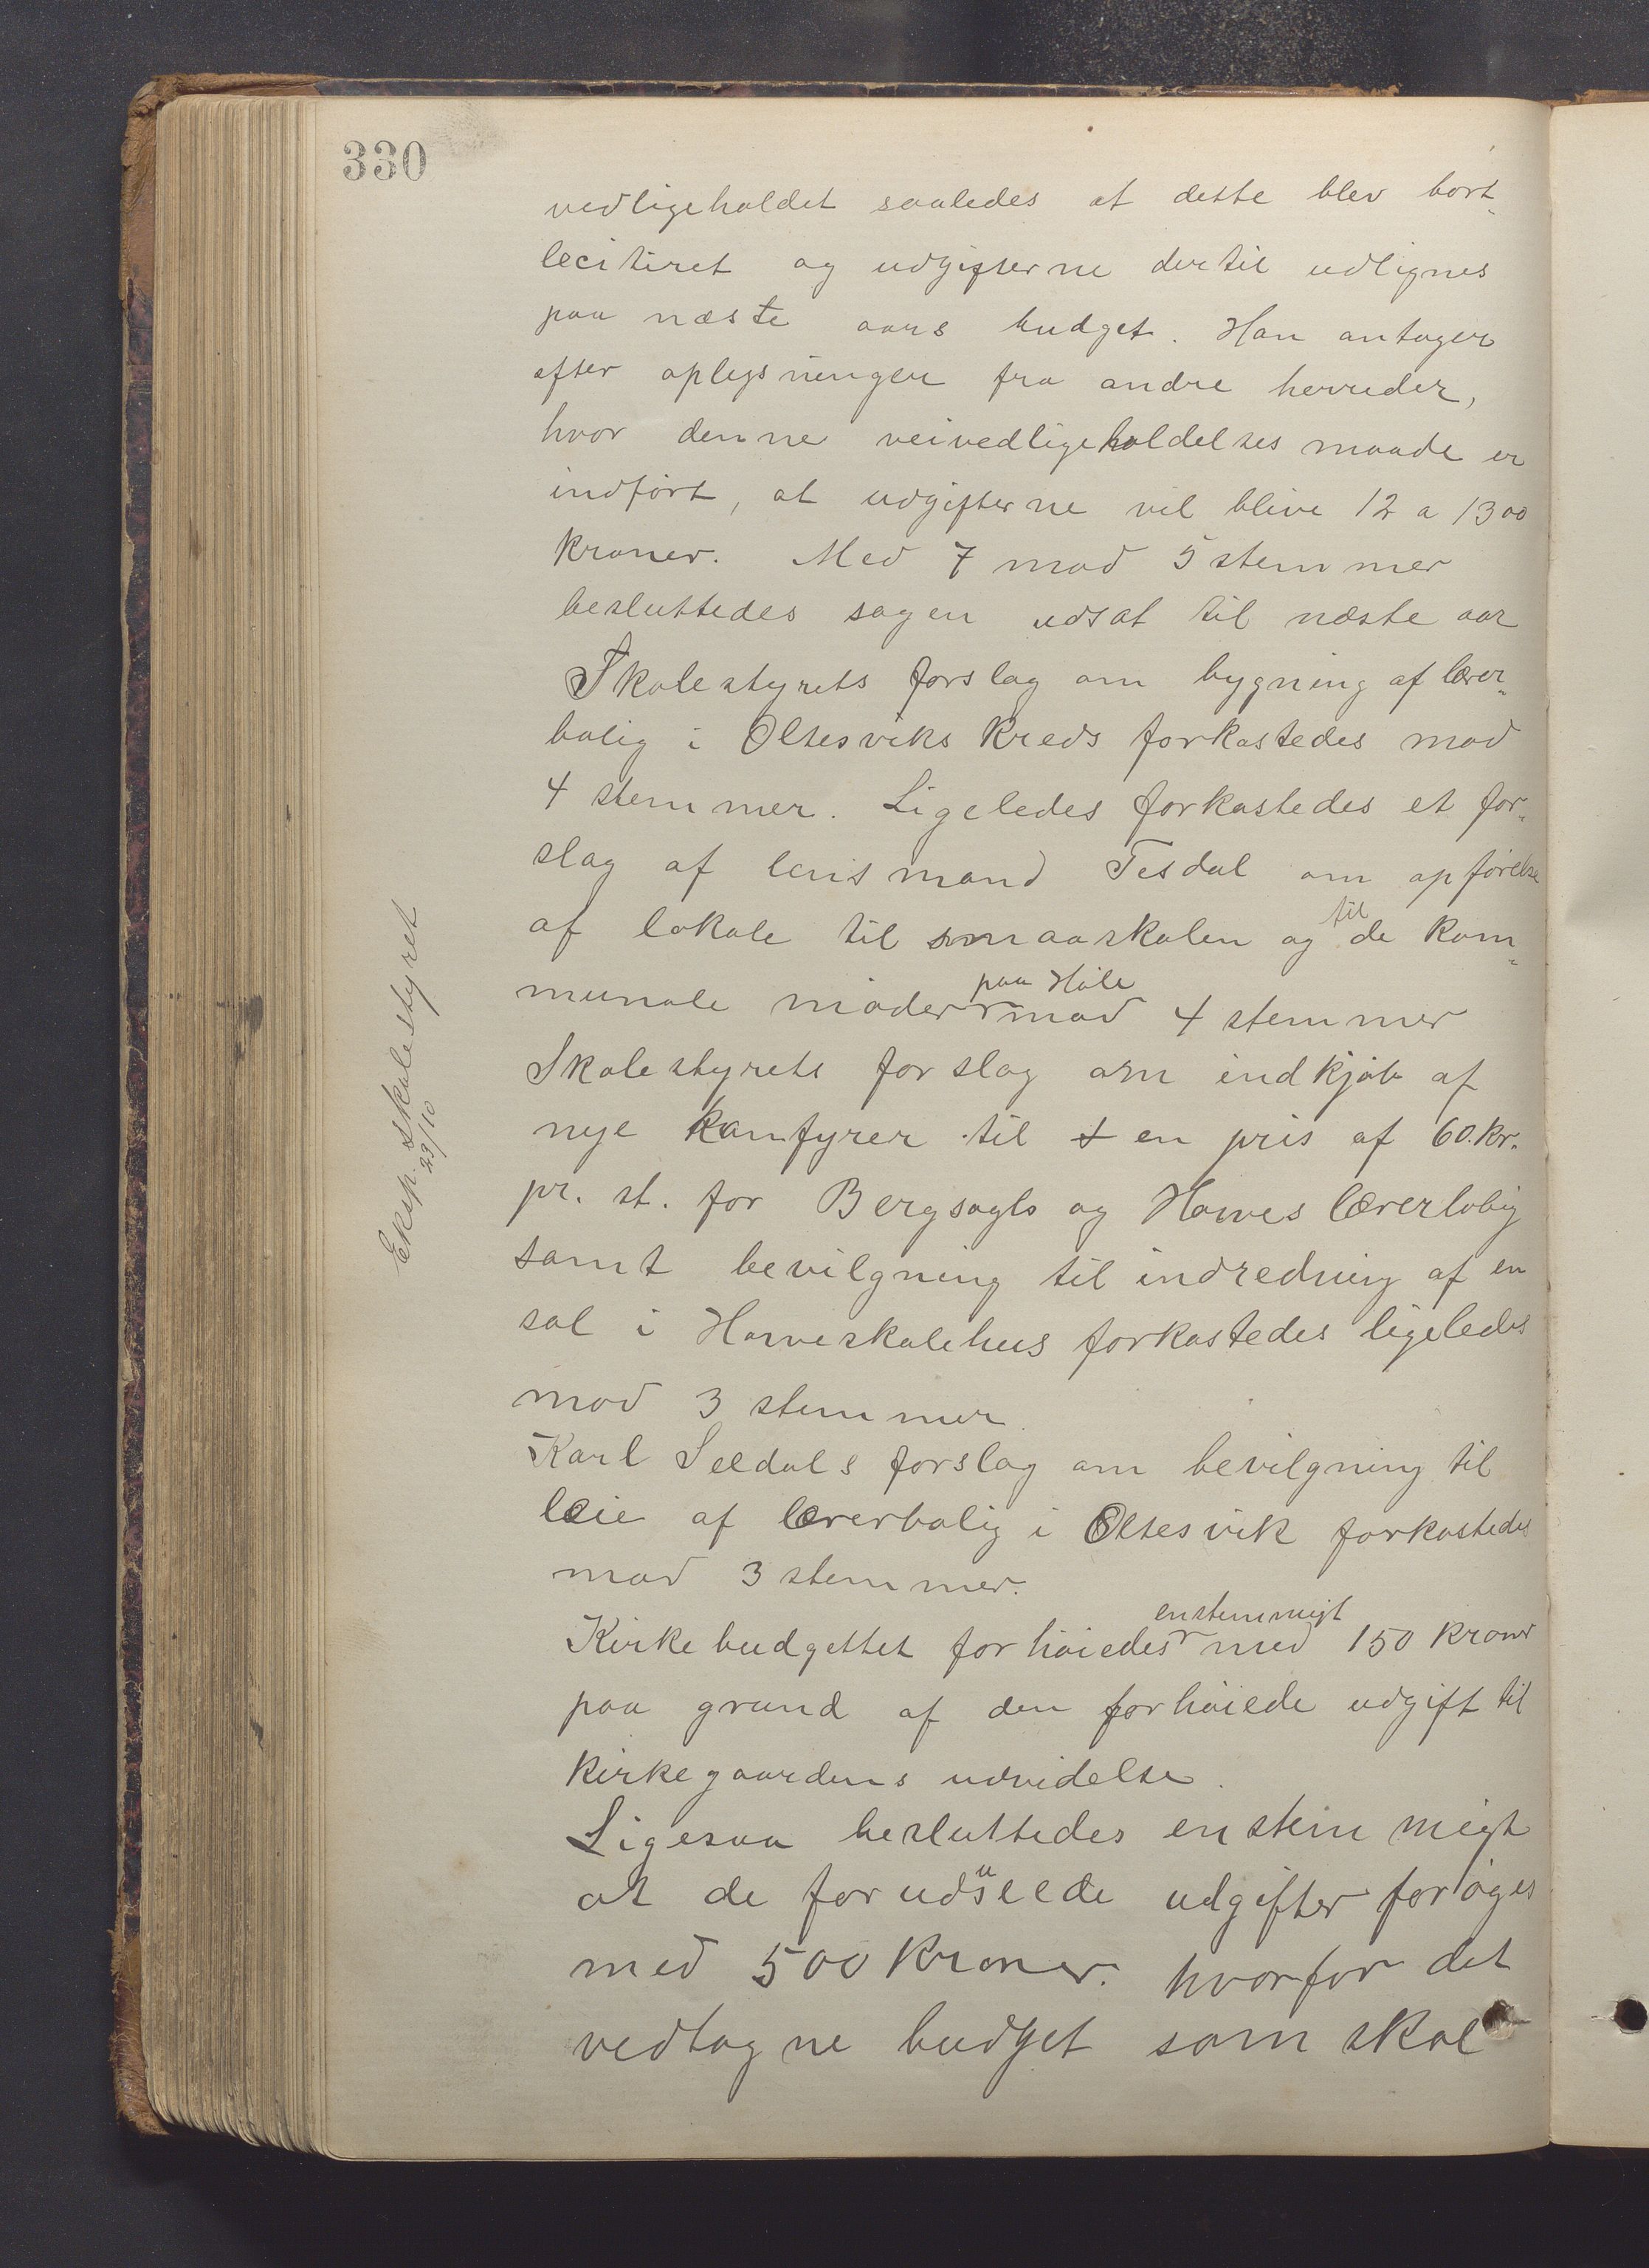 330
vedligeholdet saaledes at dette blev bort-
lecitiret og udgifterne dertil udlignes
paa næste aars budget. Han antager
efter oplysninger fra andre herreder,
hvor denne veivedligeholdelses maade er
indført, at udgifterne vil blive 12 a 1300
kroner. Med 7 mod 5 stemmer
besluttedes sagen udsat til næste aar
Skolestyrets forslag om bygning af lærer-
bolig i Oltesviks kreds forkastedes mod
4 stemmer. Ligeledes forkastedes et for-
slag af lensmand Tesdal om opførelse
af lokale til smaaskolen og til de kom-
munale møder paa Høle mod 4 stemmer
Skolestyrets forslag om indkjøb af
nye komfyrer til en pris af 60 kr.
pr. st. for Bergsagls og Hawes lærerbolig
samt bevilgning til indredning af en
sal i Haweskolehus forkastedes ligeledes
mod 3 stemmer
Karl Seldals forslag om bevilgning til
leie af lærerbolig i Oltesvik forkastedes
mod 3 stemmer.
Kirkebudgettet forhøiedes enstemmigt med 150 kroner
paa grund af den forhøiede udgift til
kirkegaardens udvidelse.
Ligesaa besluttedes enstemmigt
at de foruduseede udgifter forøges
med 500 kroner. hvorfor det
vedtagne budget som skal
Eksp. skolestyret
23/10